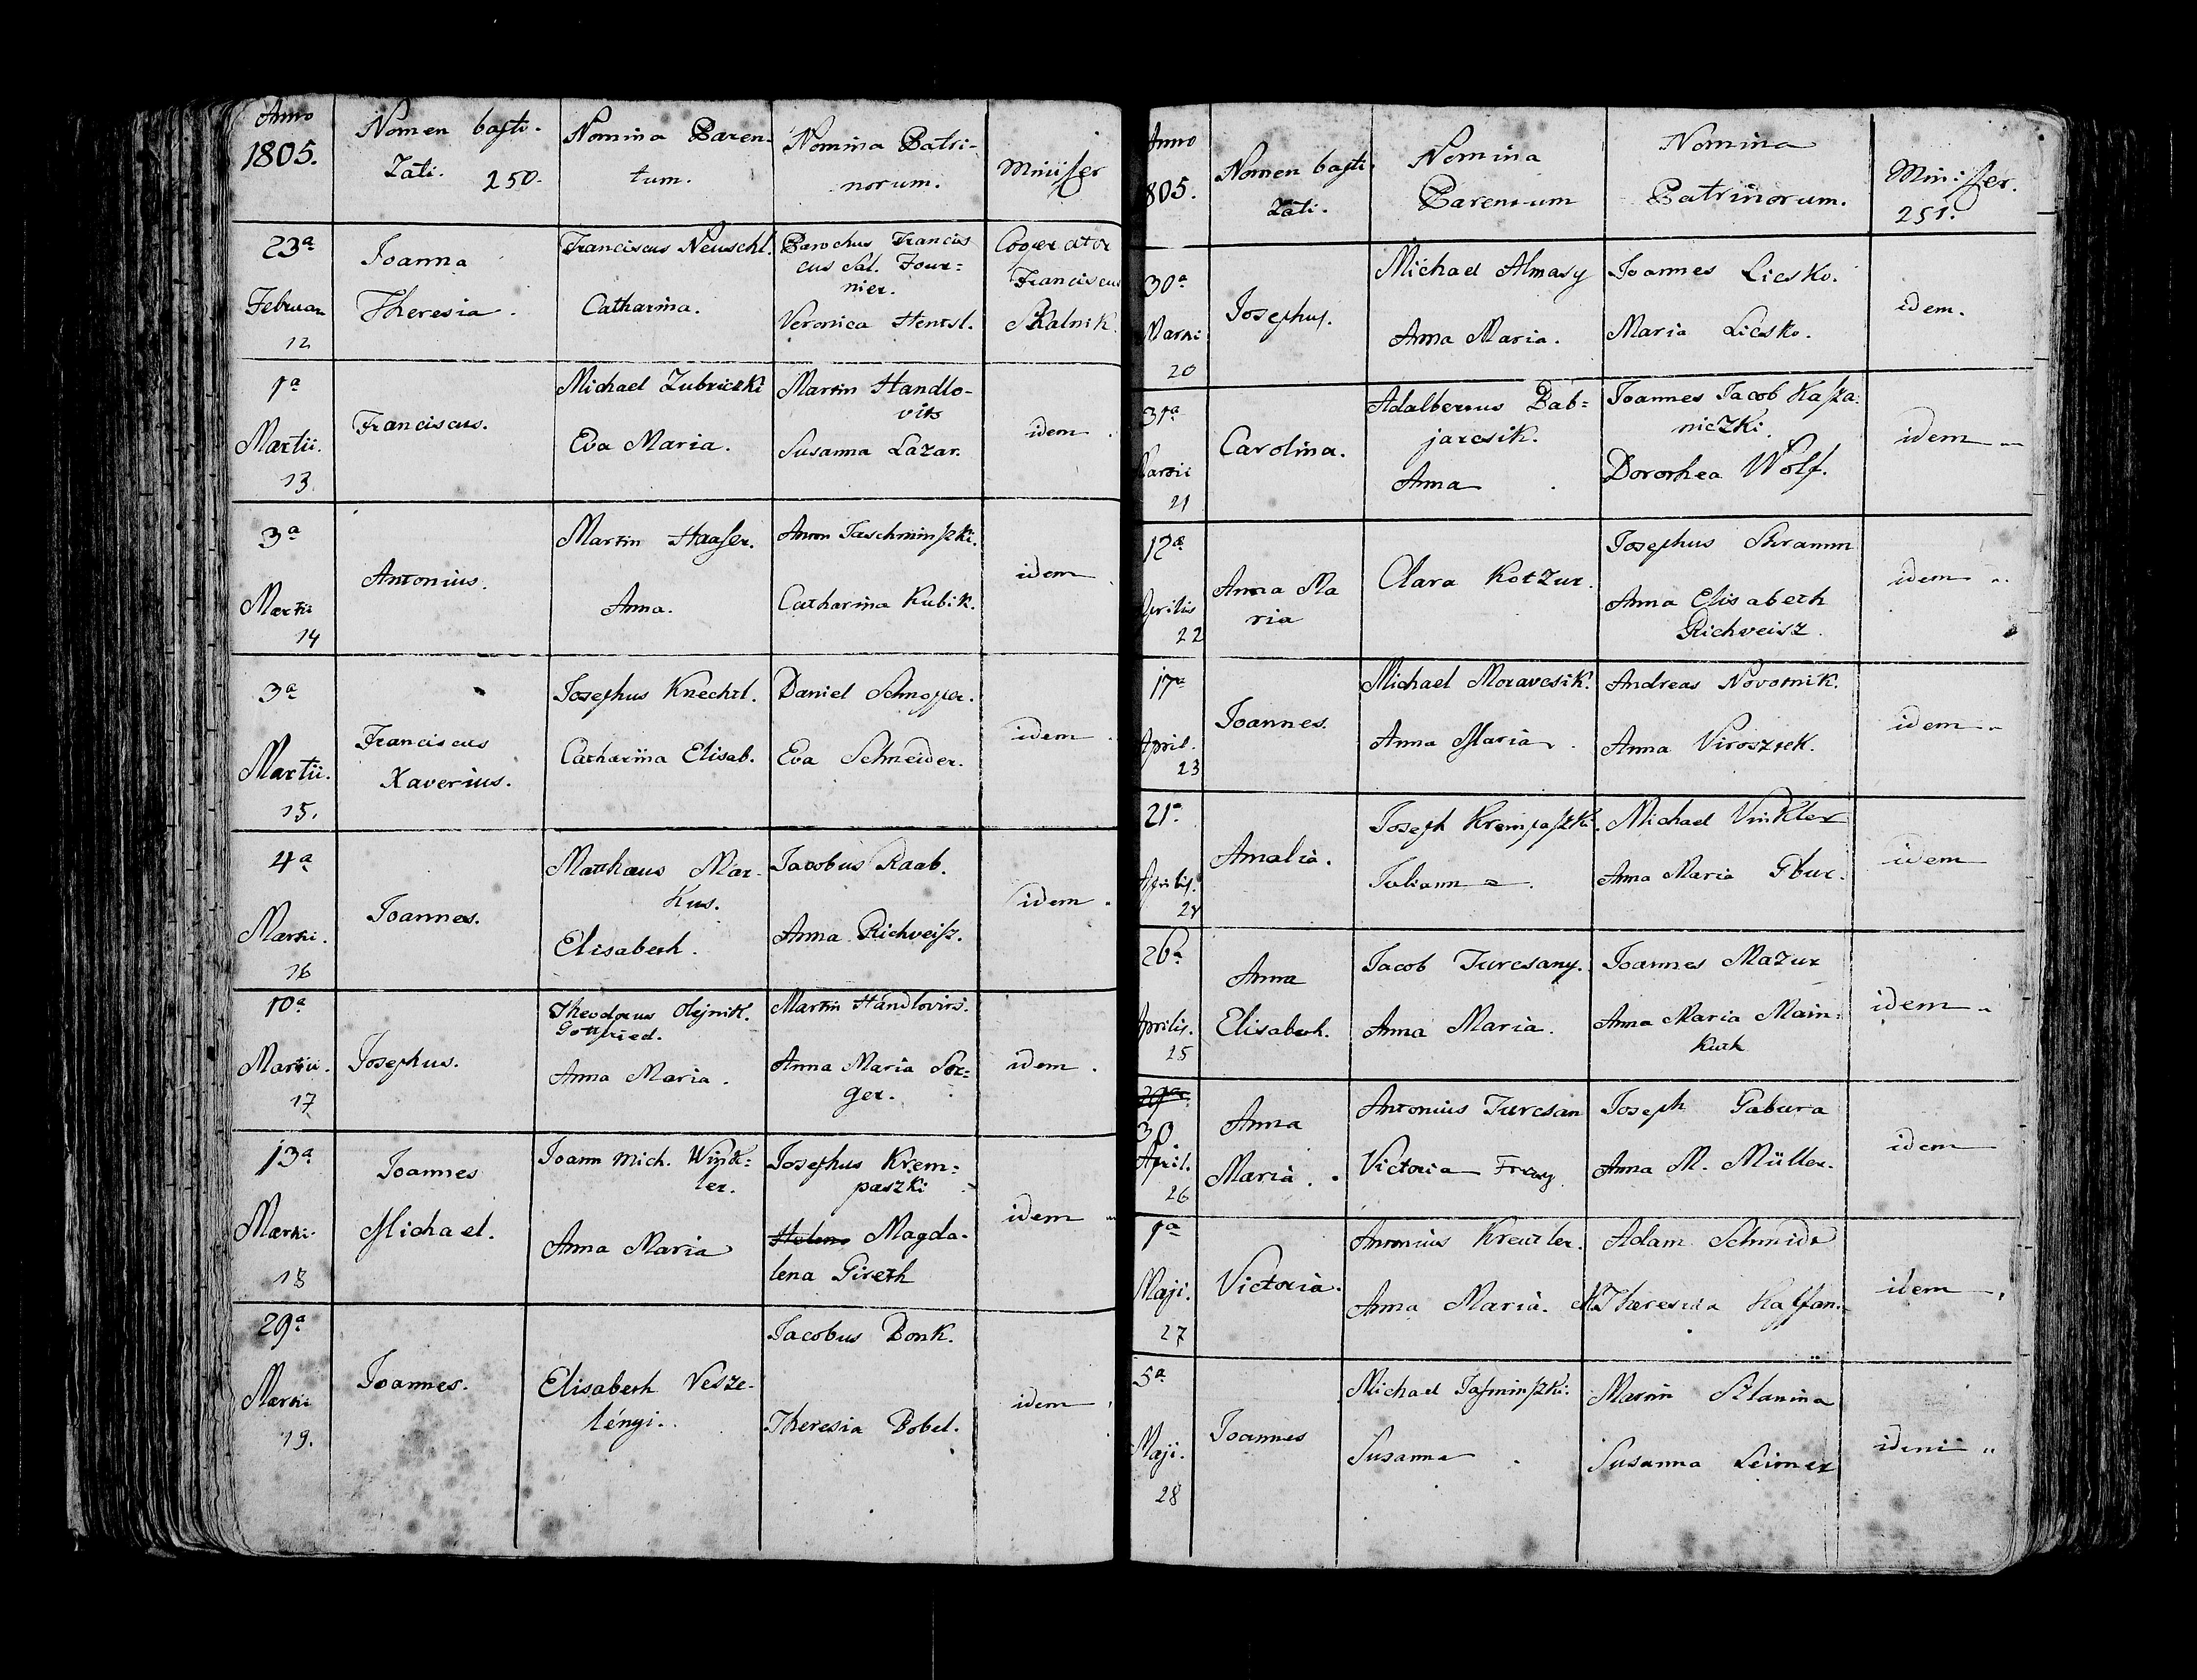 Anno
1805.
Nomen bapti-
zati. 250.
Nomina Paren-
tum.
Nomina Patri-
norum.
Minister
23a
Februar
12
Joanna
Theresia.
Franciscus Neuschl.
Catharina.
Parochus Francis
cus Sal. Four=
nier.
Veronica Hentsl.
Cooperator
Franciscus
Skalnik.
1a
Martii.
13.
Franciscus.
Michael Zubriczki
Eva Maria.
Martin Handlo-
vits
Susanna Lazar.
idem.
3a
Martii
14
Antonius.
Martin Haaser.
Anna.
Anton Jaschminszki.
Catharina Kubik.
idem.
3a
Martii.
15.
Franciscus
Xaverius.
Josephus Knechtl.
Catharina Elisab.
Daniel Schnopper.
Eva Schneider.
idem.
4a
Martii.
16
Joannes.
Matthaeus Mar-
kus.
Elisabeth.
Jacobus Raab.
Anna Richveisz.
idem.
10a
Martii.
17
Josephus.
Theodorus Olejnik.
Gottfried.
Anna Maria.
Martin Handlovits.
Anna Maria Sor=
ger.
idem.
13a
Martii.
18
Joannes
Michael.
Joann Mich. Wink=
ler.
Anna Maria
Josephus Krem=
paszki
Helena Magda-
lena Gireth
idem
29a
Martii
19.
Joannes.
Elisabeth Vesze-
lényi.
Jacobus Bonk.
Theresia Bobel.
idem
Anno
805.
Nomen bapti
zati.
Nomina
Parentum
Nomina
Patrinorum.
Minister.
251.
30a
Martii
20
Josephus.
Michael Almasy
Anna Maria.
Joannes Licsko.
Maria Licsko.
idem.
31a
Martii
21
Carolina.
Adalbertus Bab=
jarcsik.
Anna.
Joannes Jacob Kasza
niczki.
Dorothea Wolf.
idem
12a
Aprilis
22
Anna Ma
ria
Clara Kotzur.
Josephus Skramm
Anna Elisabeth
Richveisz.
idem
17a
April.
23
Joannes.
Michael Moravcsik.
Anna Maria.
Andreas Novotnik.
Anna Virosztek.
idem
21a
Aprilis.
24
Amalia.
Joseph Krempaszki.
Julianna.
Michael Vinkler
Anna Maria Gbur.
idem
26a
Aprilis.
25
Anna
Elisabeth.
Jacob Turcsany.
Anna Maria.
Joannes Mazur
Anna Maria Main=
kuth
idem
29a
30
April.
26
Anna
Maria.
Antonius Turcsan
Victoria Frey.
Joseph Gabura
Anna M. Müller.
idem
1a
Maji.
27
Victoria.
Antonius Kreutler.
Anna Maria.
Adam Schmidt
Theresia Kaffan.
idem
5a
Maji.
28
Joannes
Michael Jasminszki.
Susanna.
Martin Szlanina
Susanna Leimer
idem